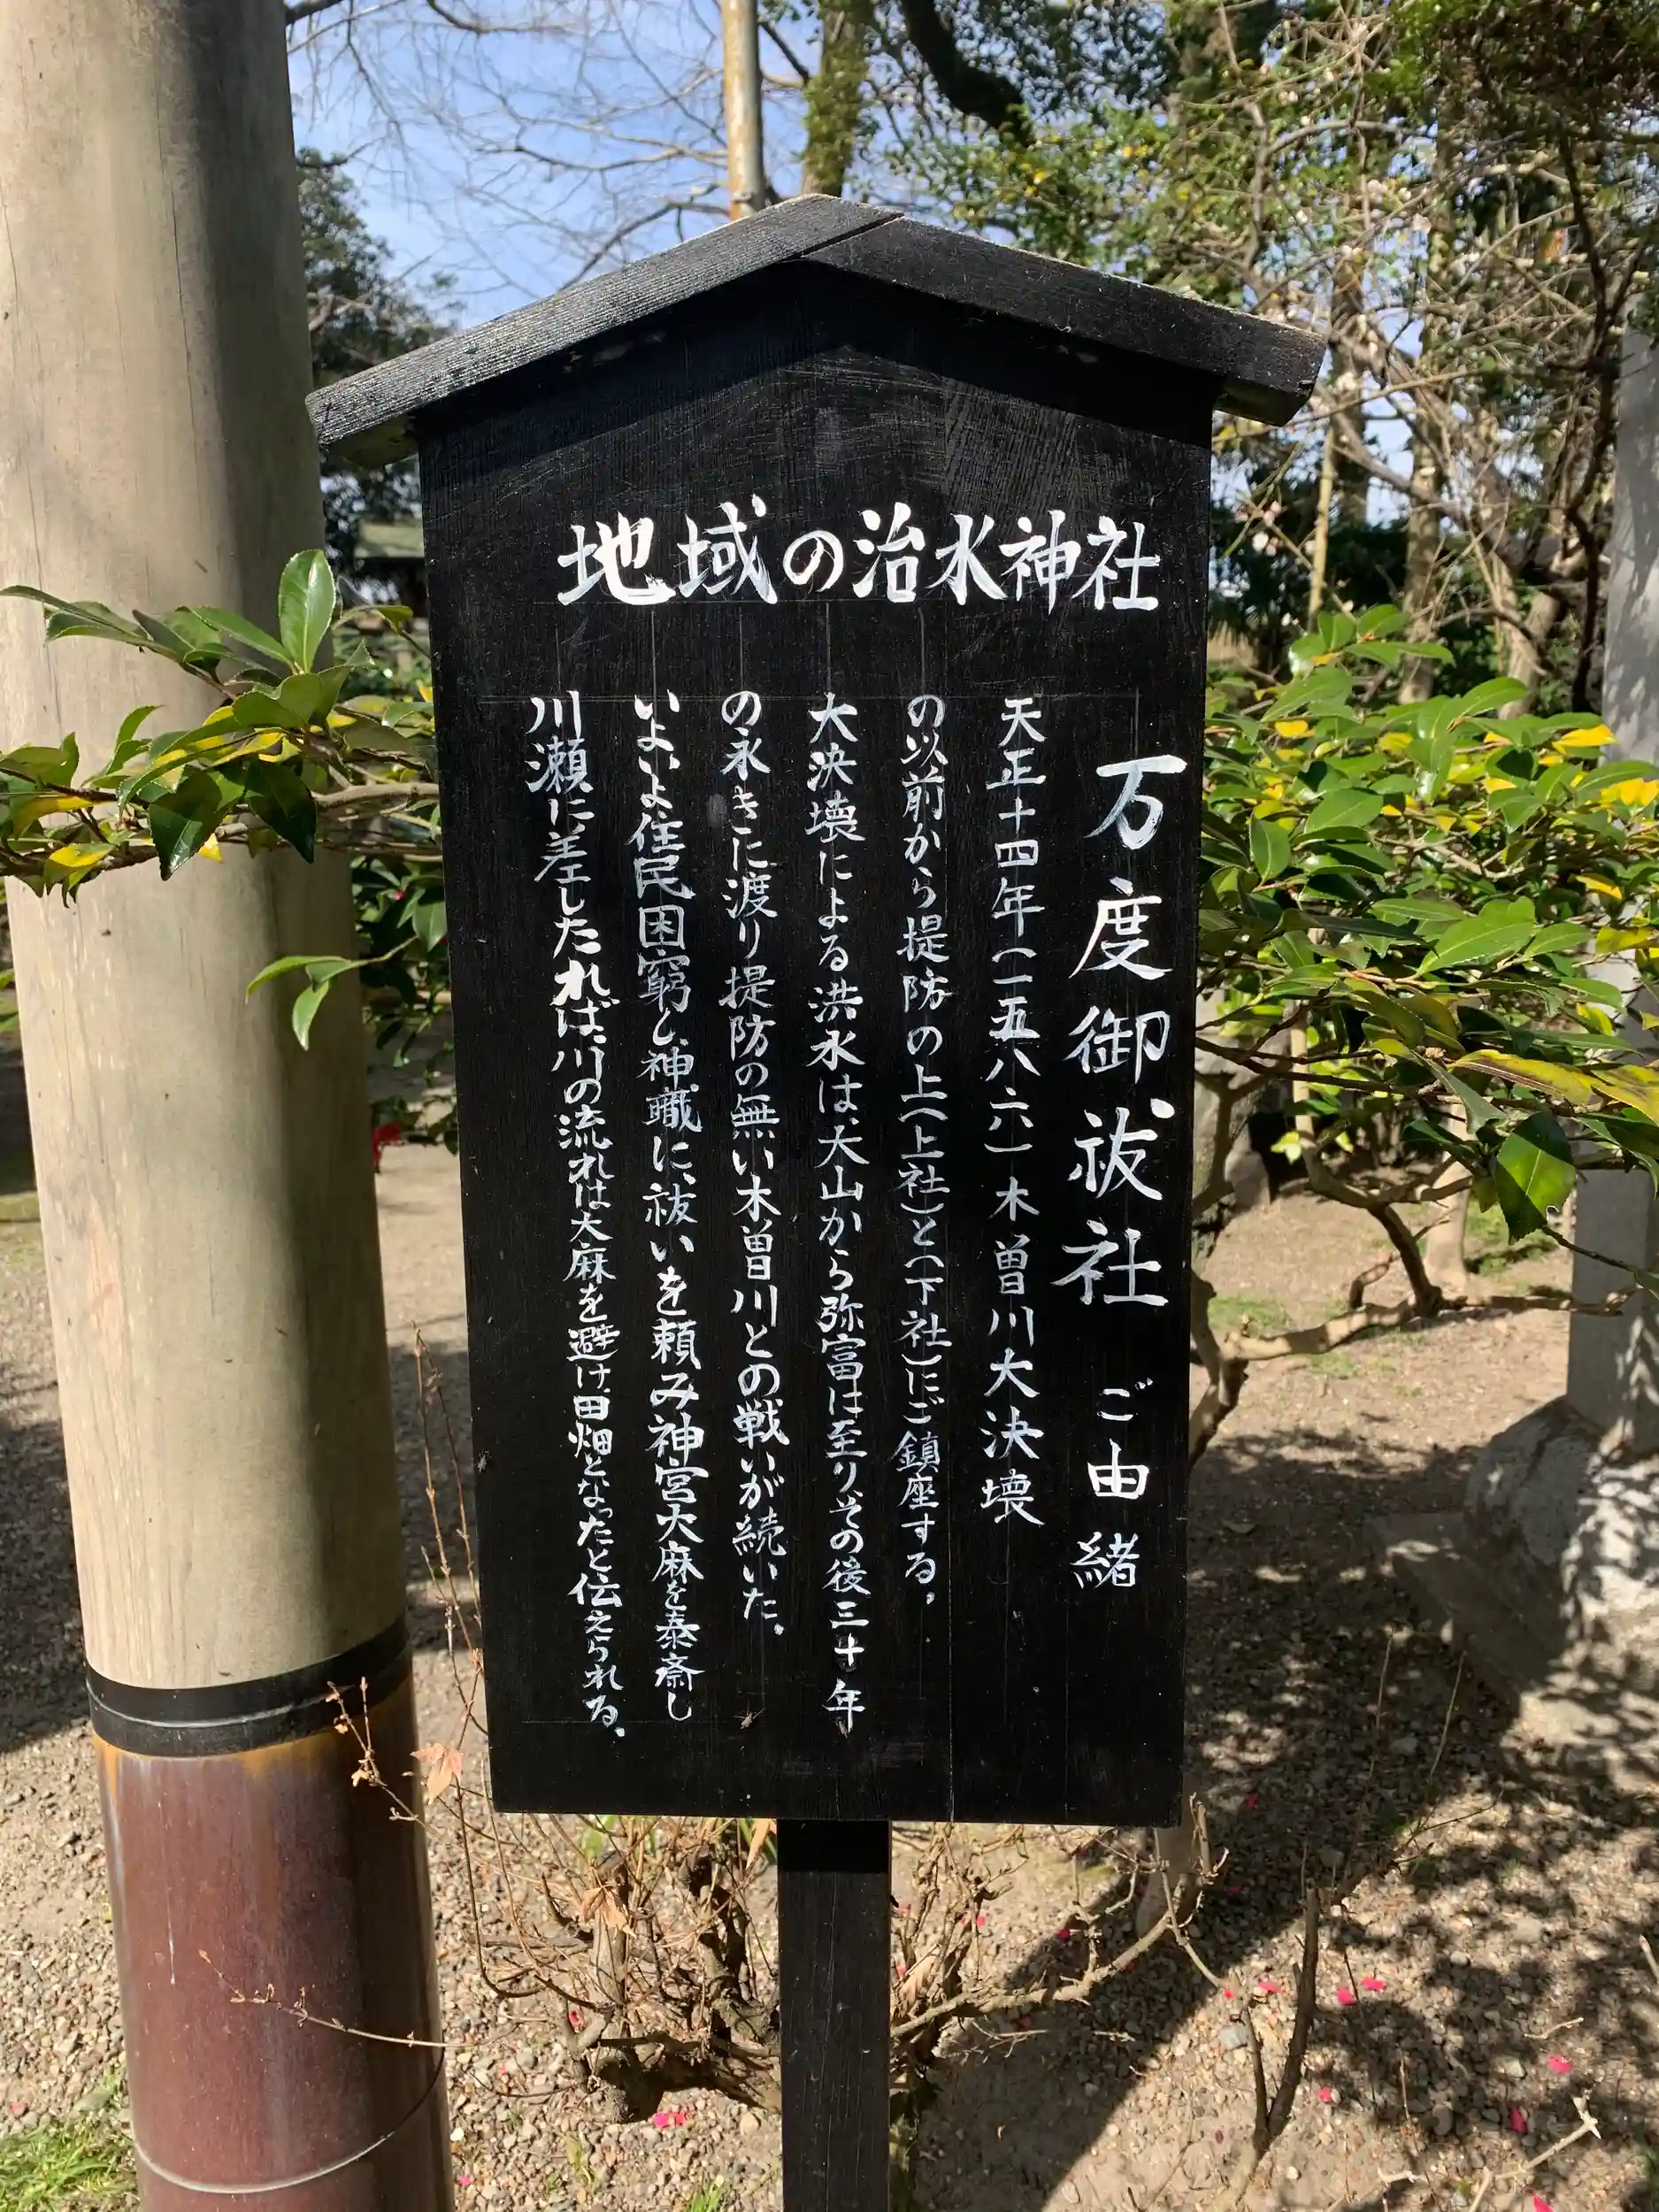 地域の治水神社
万度御祓社 ご由緒
天正十四年(一五八六)木曽川大決壊
の以前から提防の上(上社)と(下社)にご鎮座する。
大決壊による洪水は、犬山から弥富に至り、その後三十年
の永きに渡り提防の無い木曽川との戦いが続いた。
いよいよ住民困窮し、神職に祓いを頼み神宮大麻を奉斎し
川瀬に差したれば、川の流れは大麻を避け、田畑となったと伝えられる。